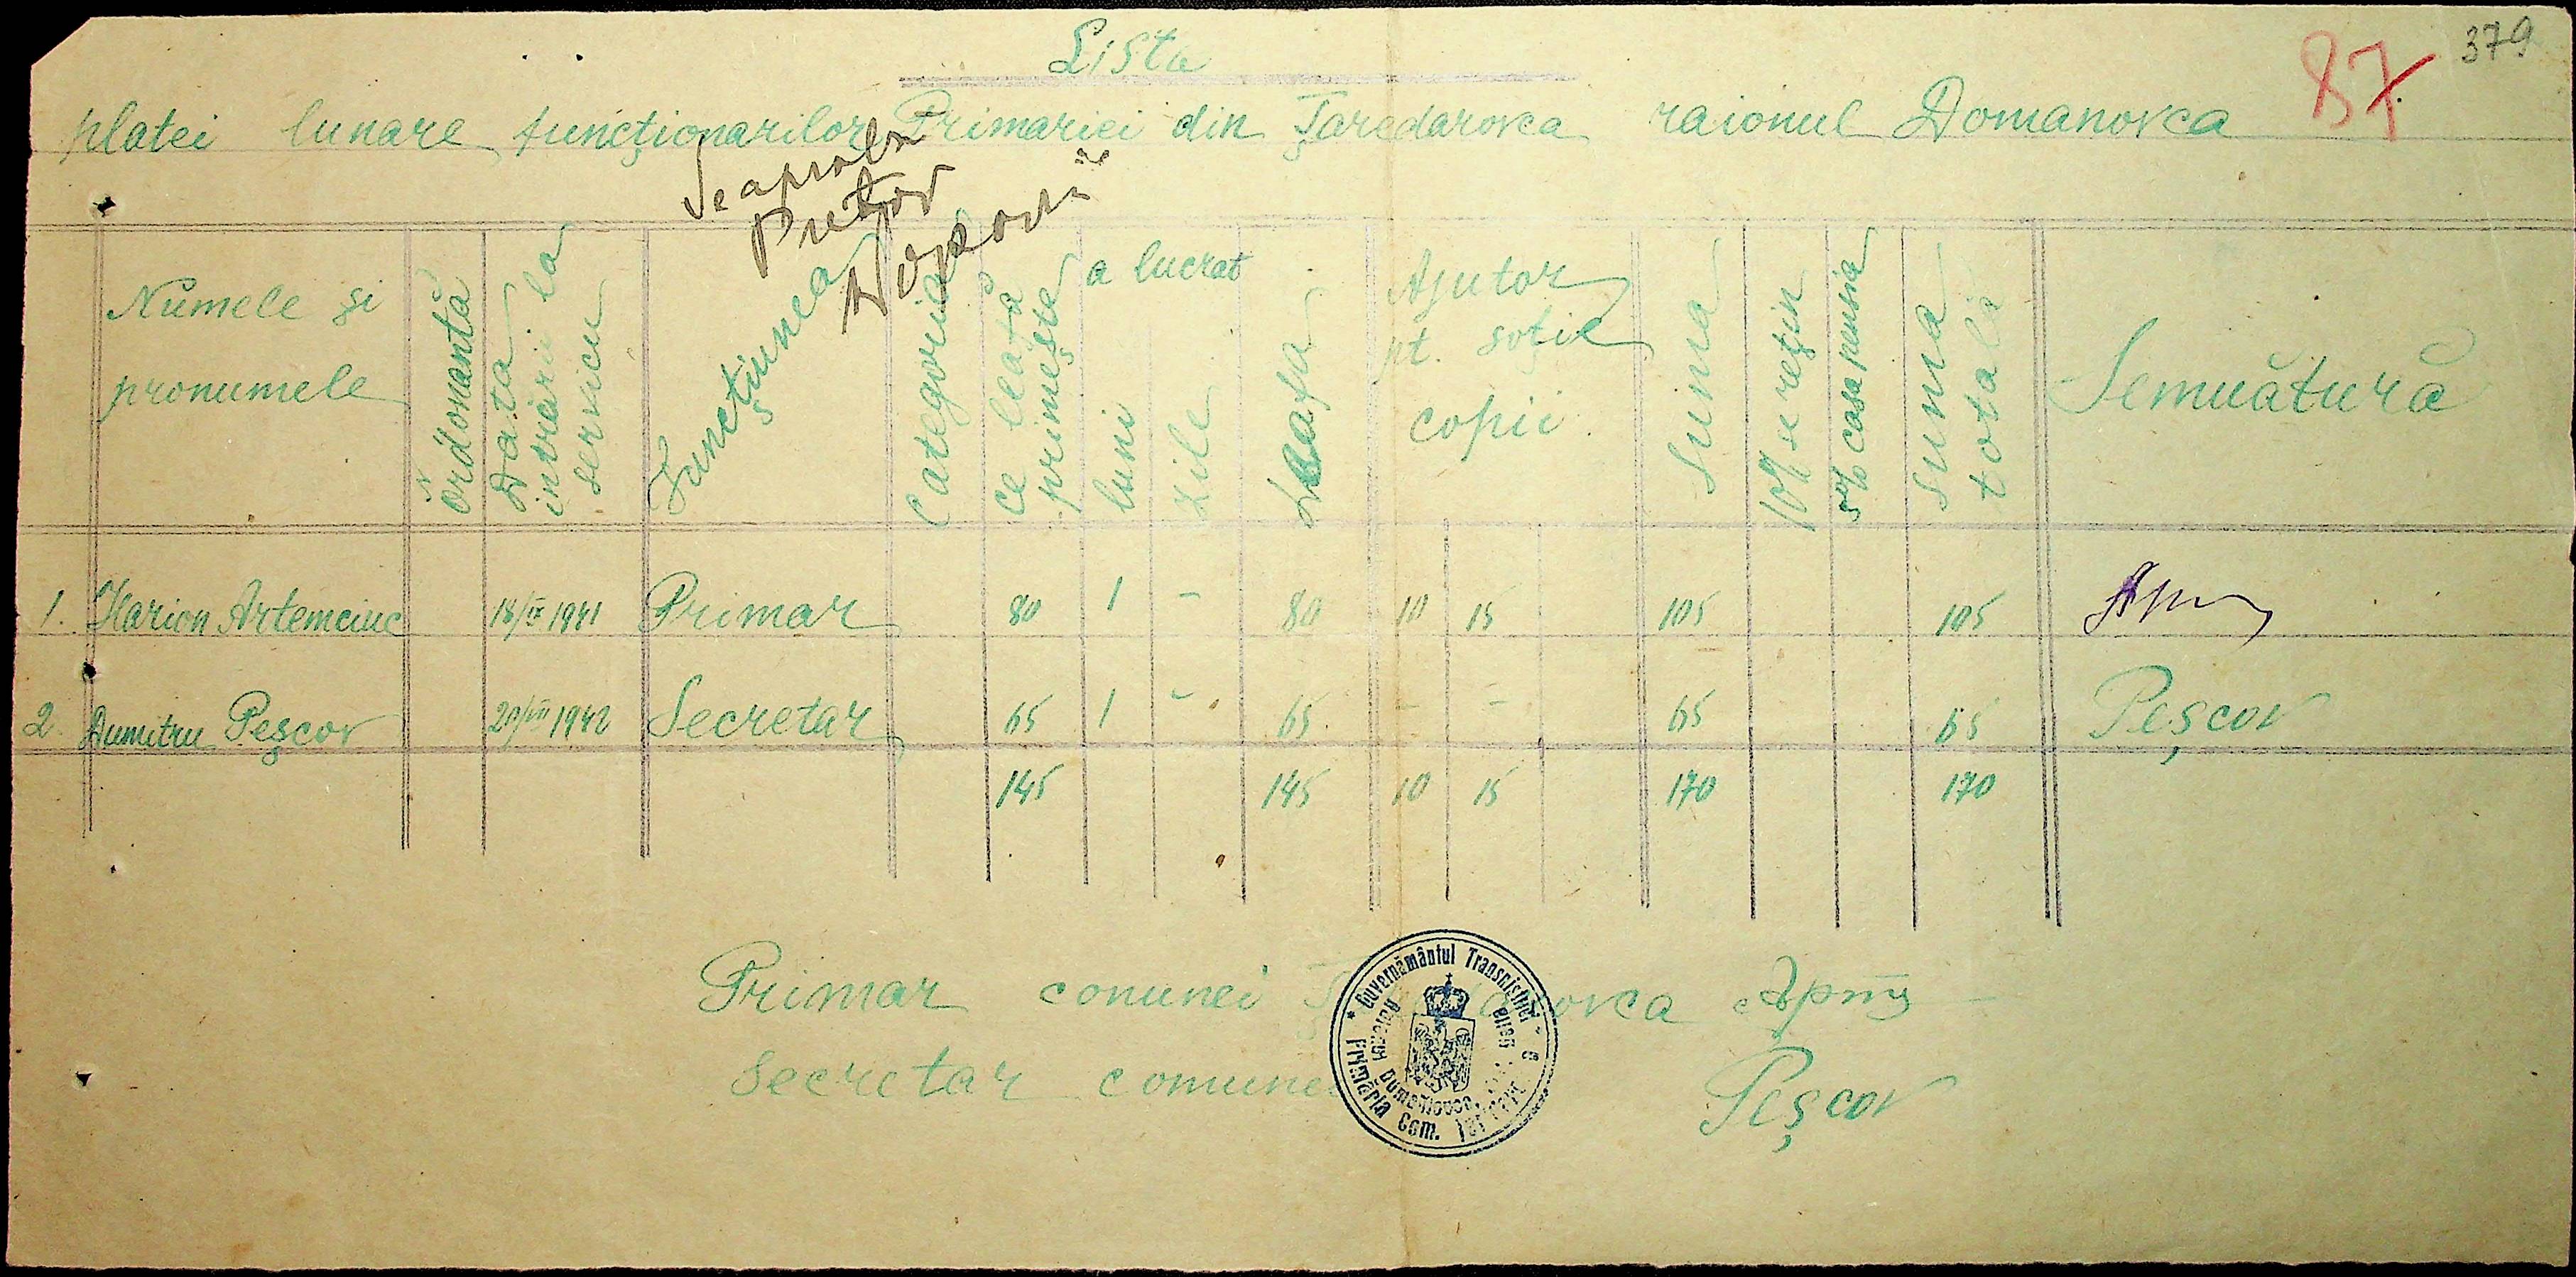 Lista
87
379
platei lunare funcționarilor Primariei din Țaredarovca raionul Domanovca
Se aproba
Pretor
Numele și pronumele
N Ordonanță
Data intrarii la serviciu
Funcțiunea
Categoria
ce leafă primește
a lucrat
luni
zile
Leafa
Ajutor pt. soție copii
Suma
10% se rețin
5% casa pensia
Suma totală
Semnătură
1. Ilarion Artemciuc 18/IX 1941 Primar 80 1 - 80 10 15 105 105
2. Dumitru Peșcov 20/VII 1942 Secretar 65 1 - 65 - - 65 65 Peșcov
145 145 10 15 170 170
Primar comunei
Secretar comunei Peșcov
* Guvernământul Transnistriei *
Primăria Com.
Raionul Dumaniovca